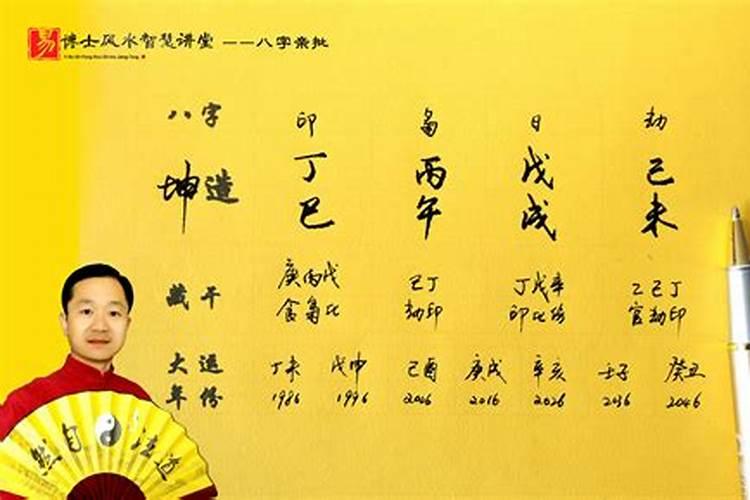 易 博士风水智慧讲堂 ——八字亲批
八字 印 枭 日 劫
坤造 丁巳 丙午 戊戌 己未
藏干 庚丙戊 己丁 丁戊辛 乙己丁
食枭比 劫印 印比伤 官劫印
大运 丁未 戊申 己酉 庚戌 辛亥 壬子 癸丑
年份 1986 1996 2006 2016 2026 2036 2046
然自法道